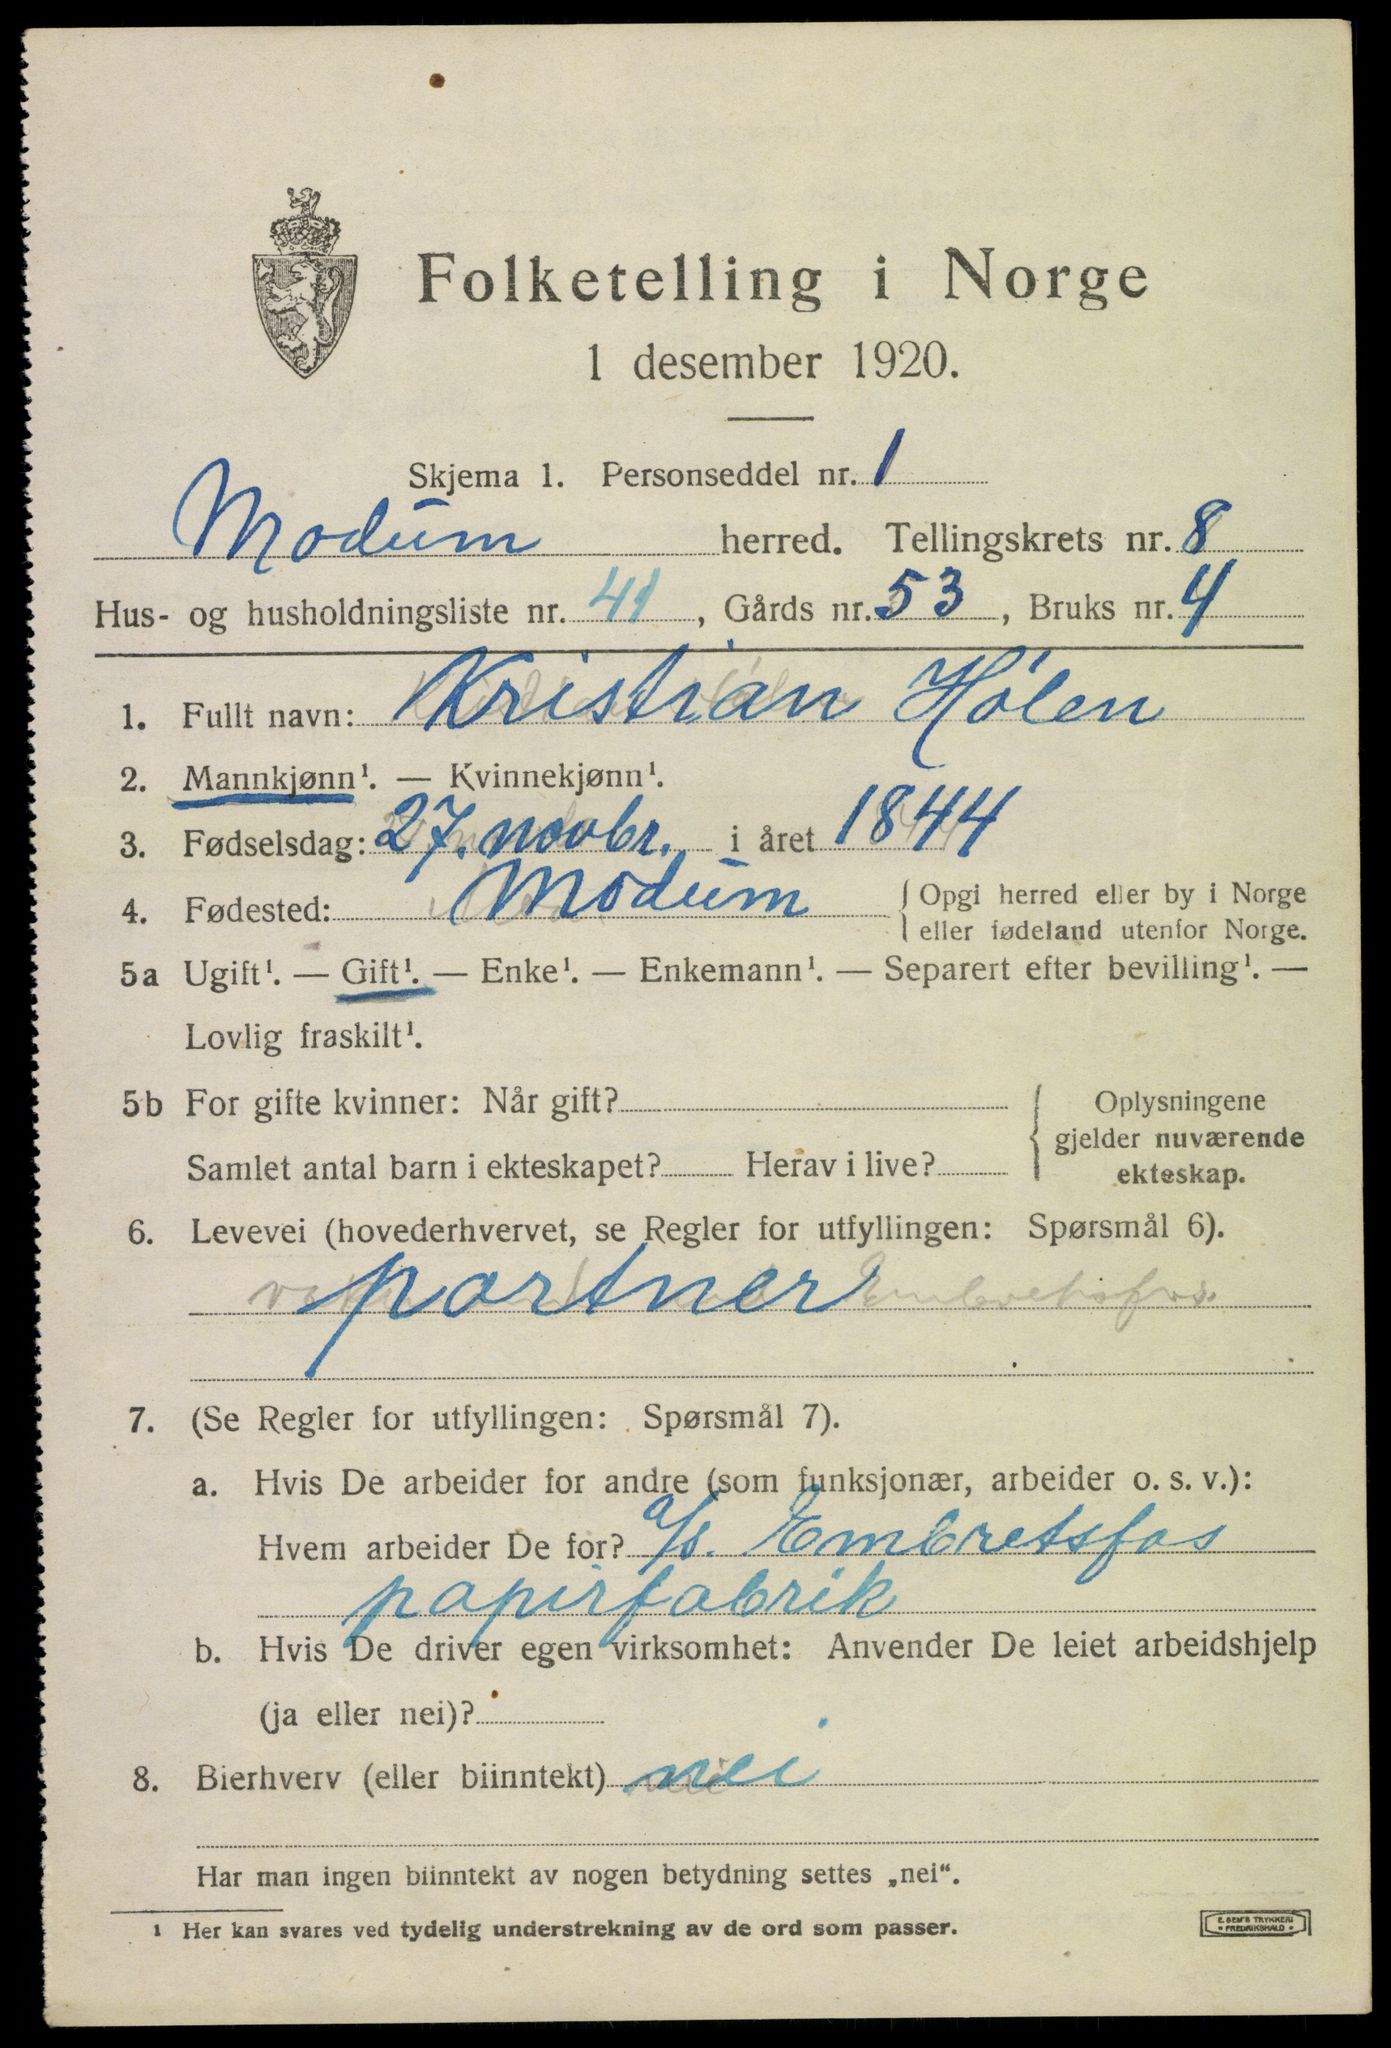 Folketelling i Norge
1 desember 1920.
Skjema 1. Personseddel nr. 1
Modum herred. Tellingskrets nr. 8
Hus- og husholdningsliste nr. 41, Gårds nr. 53, Bruks nr. 4
1. Fullt navn: Kristian Hólen
2. Mannkjønn¹. — Kvinnekjønn¹.
3. Fødselsdag: 27. novbr. i året 1844
4. Fødested: Modum { Opgi herred eller by i Norge
eller fødeland utenfor Norge.
5a Ugift¹. — Gift¹. — Enke¹. — Enkemann¹. — Separert efter bevilling¹. —
Lovlig fraskilt¹.
5b For gifte kvinner: Når gift?
Samlet antal barn i ekteskapet? Herav i live?
Oplysningene
gjelder nuværende
ekteskap.
6. Levevei (hovederhvervet, se Regler for utfyllingen: Spørsmål 6).
portner Embretsfos
7. (Se Regler for utfyllingen: Spørsmål 7).
a. Hvis De arbeider for andre (som funksjonær, arbeider o. s. v.):
Hvem arbeider De for? a/s. Embretsfos
papirfabrik
b. Hvis De driver egen virksomhet: Anvender De leiet arbeidshjelp
(ja eller nei)?
8. Bierhverv (eller biinntekt) nei
Har man ingen biinntekt av nogen betydning settes „nei“.
¹ Her kan svares ved tydelig understrekning av de ord som passer.
E. SEM'S TRYKKERI
FREDRIKSHALD